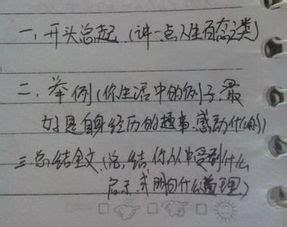 一、开头总起（讲一点人生百态之类）
二、举例（你生活中的例子,最
好是自身经历的趣事,感动什么的）
三、总结全文（总结你从中受到什么
启示,或明白什么道理）